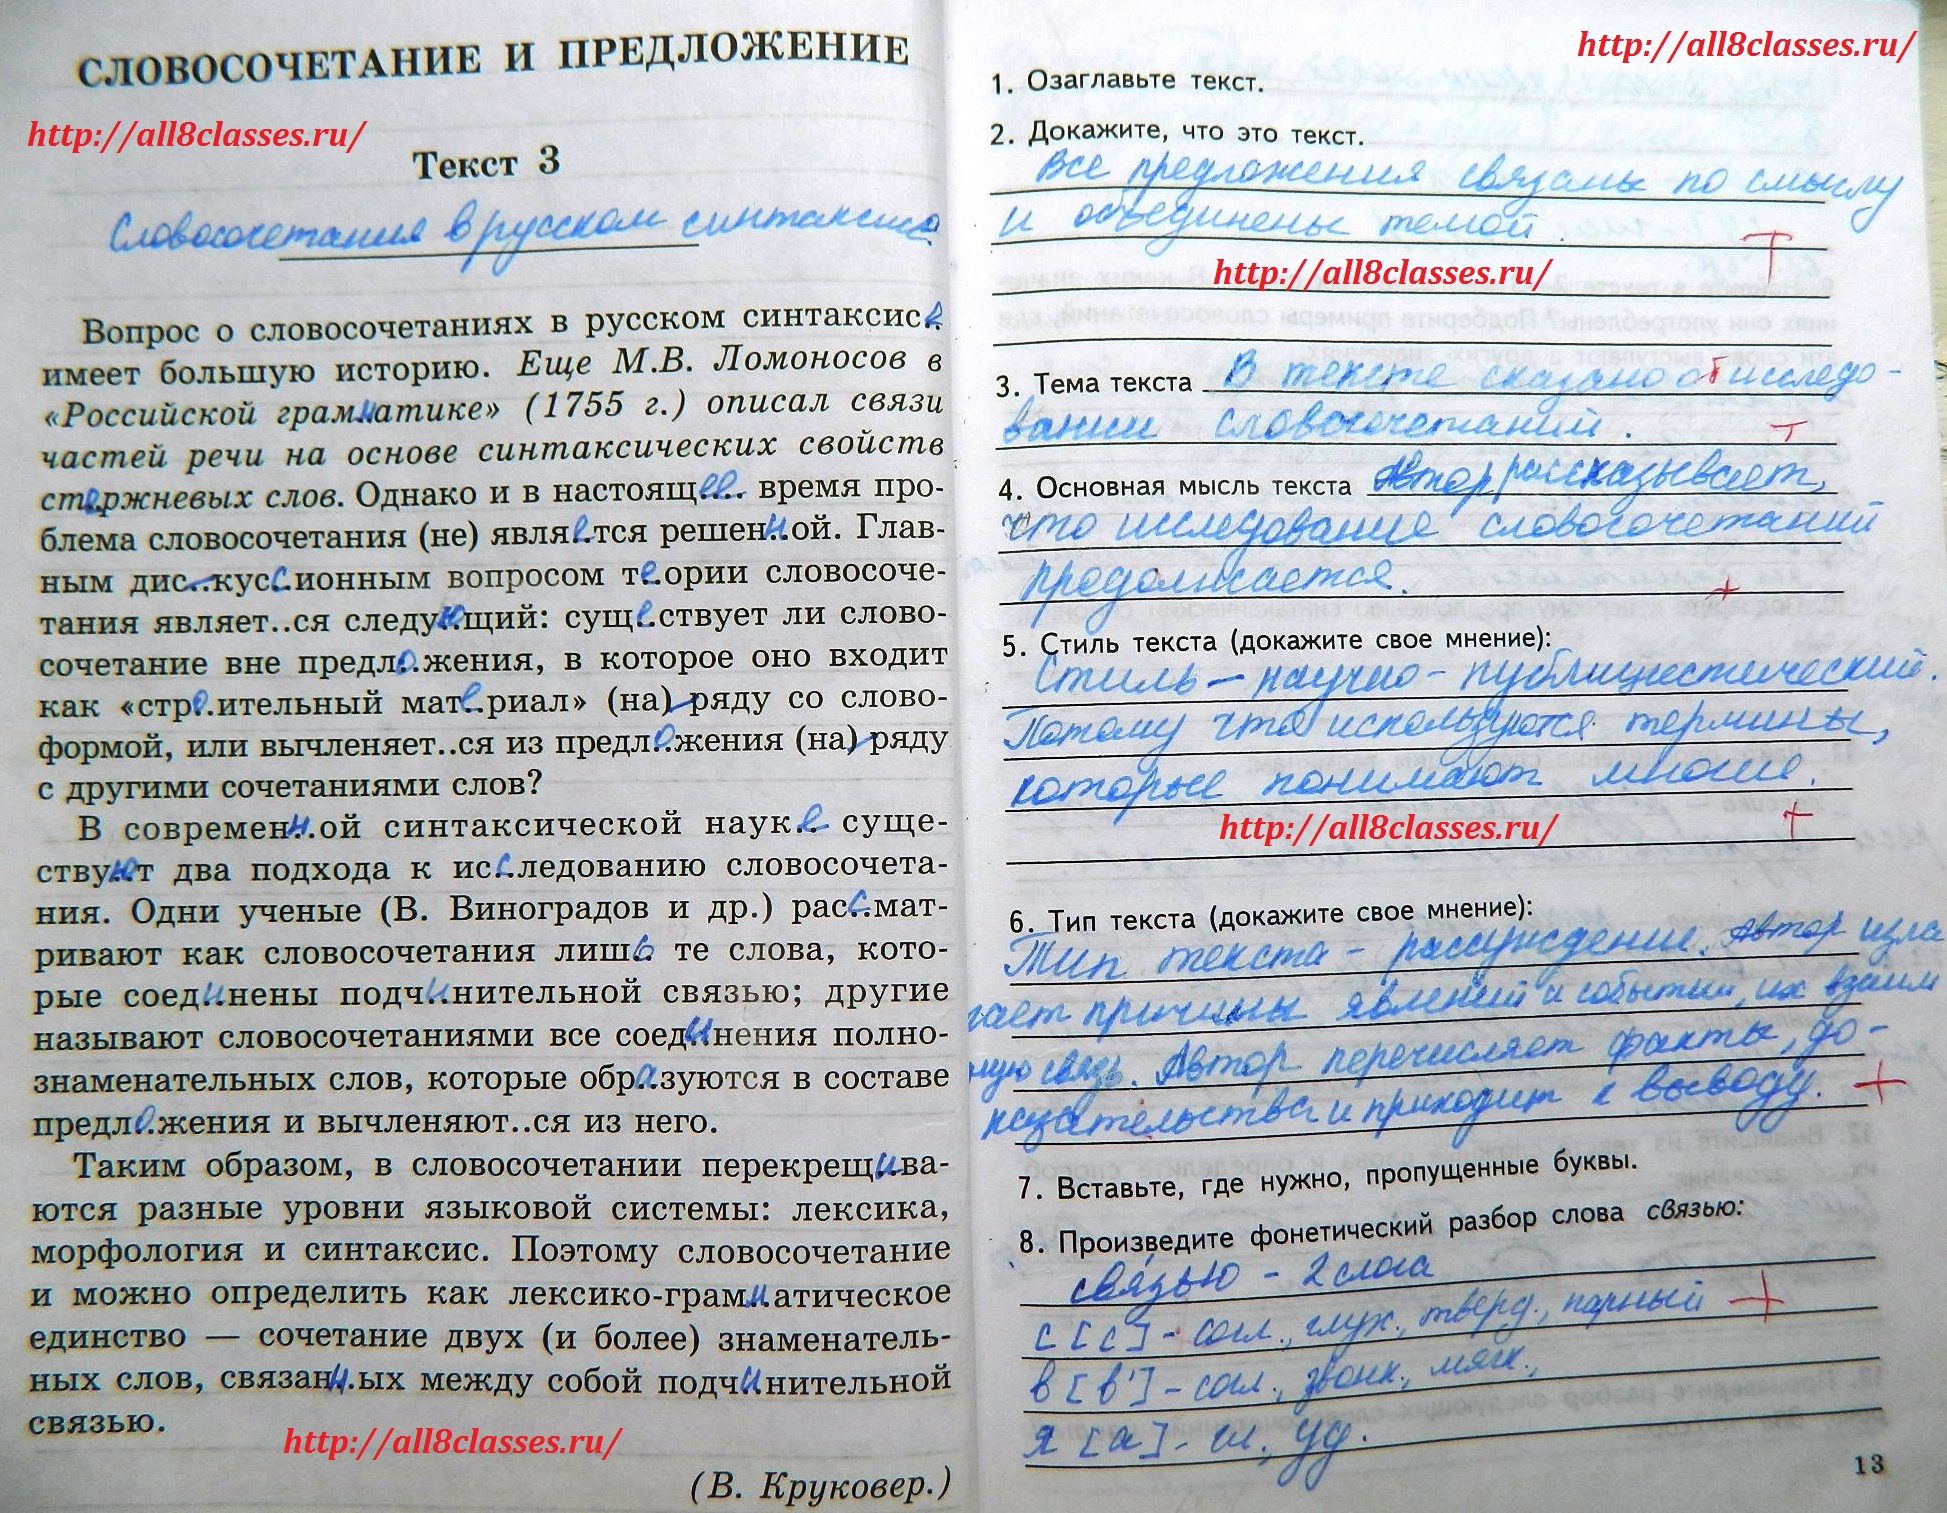 СЛОВОСОЧЕТАНИЕ И ПРЕДЛОЖЕНИЕ
http://all8classes.ru/
Текст 3
Словосочетания в русском синтаксисе
Вопрос о словосочетаниях в русском синтаксисе
имеет большую историю. Еще М.В. Ломоносов в
«Российской грамм..атике» (1755 г.) описал связи
частей речи на основе синтаксических свойств
стержневых слов. Однако и в настоящее.... время про-
блема словосочетания (не) являе..тся решенн..ой. Глав-
ным дис..кусс..ионным вопросом те..ории словосоче-
тания являет..ся следую..щий: суще..ствует ли слово-
сочетание вне предло..жения, в которое оно входит
как «стро..ительный мате..риал» (на) ряду со слово-
формой, или вычленяет..ся из предло..жения (на) ряду
с другими сочетаниями слов?
В современн..ой синтаксической науке.. суще-
ствую..т два подхода к исс..ледованию словосочета-
ния. Одни ученые (В. Виноградов и др.) расс..мат-
ривают как словосочетания лишь.. те слова, кото-
рые соеди..нены подчи..нительной связью; другие
называют словосочетаниями все соеди..нения полно-
знаменательных слов, которые обра..зуются в составе
предло..жения и вычленяют..ся из него.
Таким образом, в словосочетании перекрещи..ва-
ются разные уровни языковой системы: лексика,
морфология и синтаксис. Поэтому словосочетание
и можно определить как лексико-грамм..атическое
единство — сочетание двух (и более) знаменатель-
ных слов, связанн..ых между собой подчи..нительной
связью.
http://all8classes.ru/
(В. Круковер.)
http://all8classes.ru/
1. Озаглавьте текст.
2. Докажите, что это текст.
Все предложения связаны по смыслу
и объединены темой.
http://all8classes.ru/
3. Тема текста В тексте сказано об исследо-
вании словосочетаний.
4. Основная мысль текста Автор рассказывает,
что исследование словосочетаний
продолжается.
5. Стиль текста (докажите свое мнение):
Стиль – научно-публицистический.
Потому что используются термины,
которые понимают многие.
http://all8classes.ru/
6. Тип текста (докажите свое мнение):
Тип текста – рассуждение. Автор изла
гает причины явлений и событий, их взаим
ную связь. Автор перечисляет факты, до-
казательства и приходит к выводу.
7. Вставьте, где нужно, пропущенные буквы.
8. Произведите фонетический разбор слова связью:
связью – 2 слога
с [с] – согл., глух., тверд., парный
в [в'] – согл., звонк., мягк.,
я [а] – гл., уд.
13